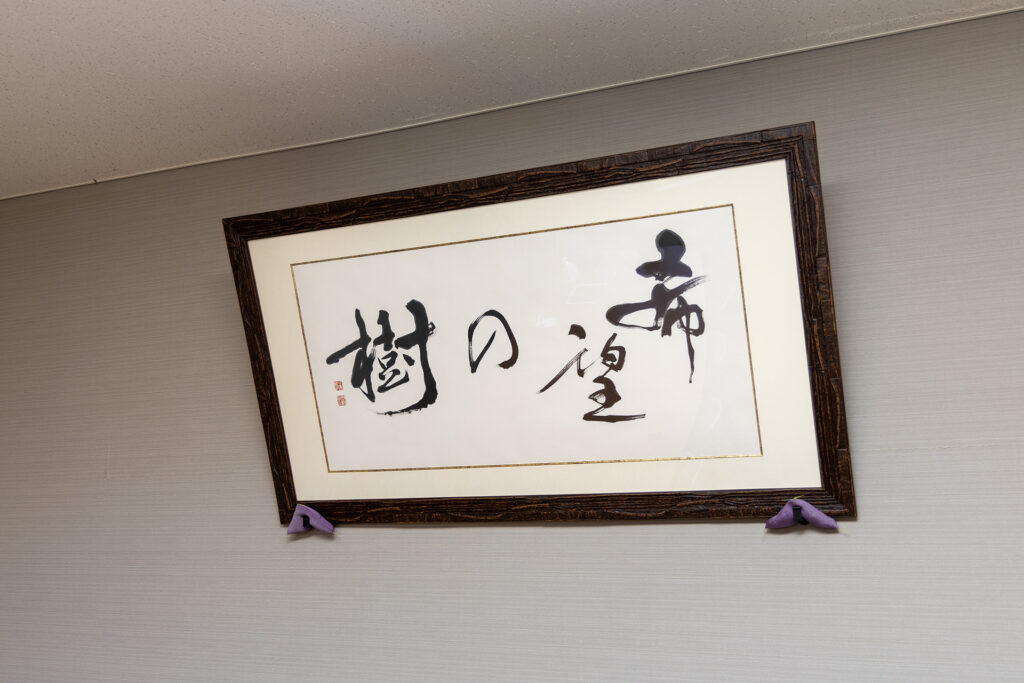 希望の樹